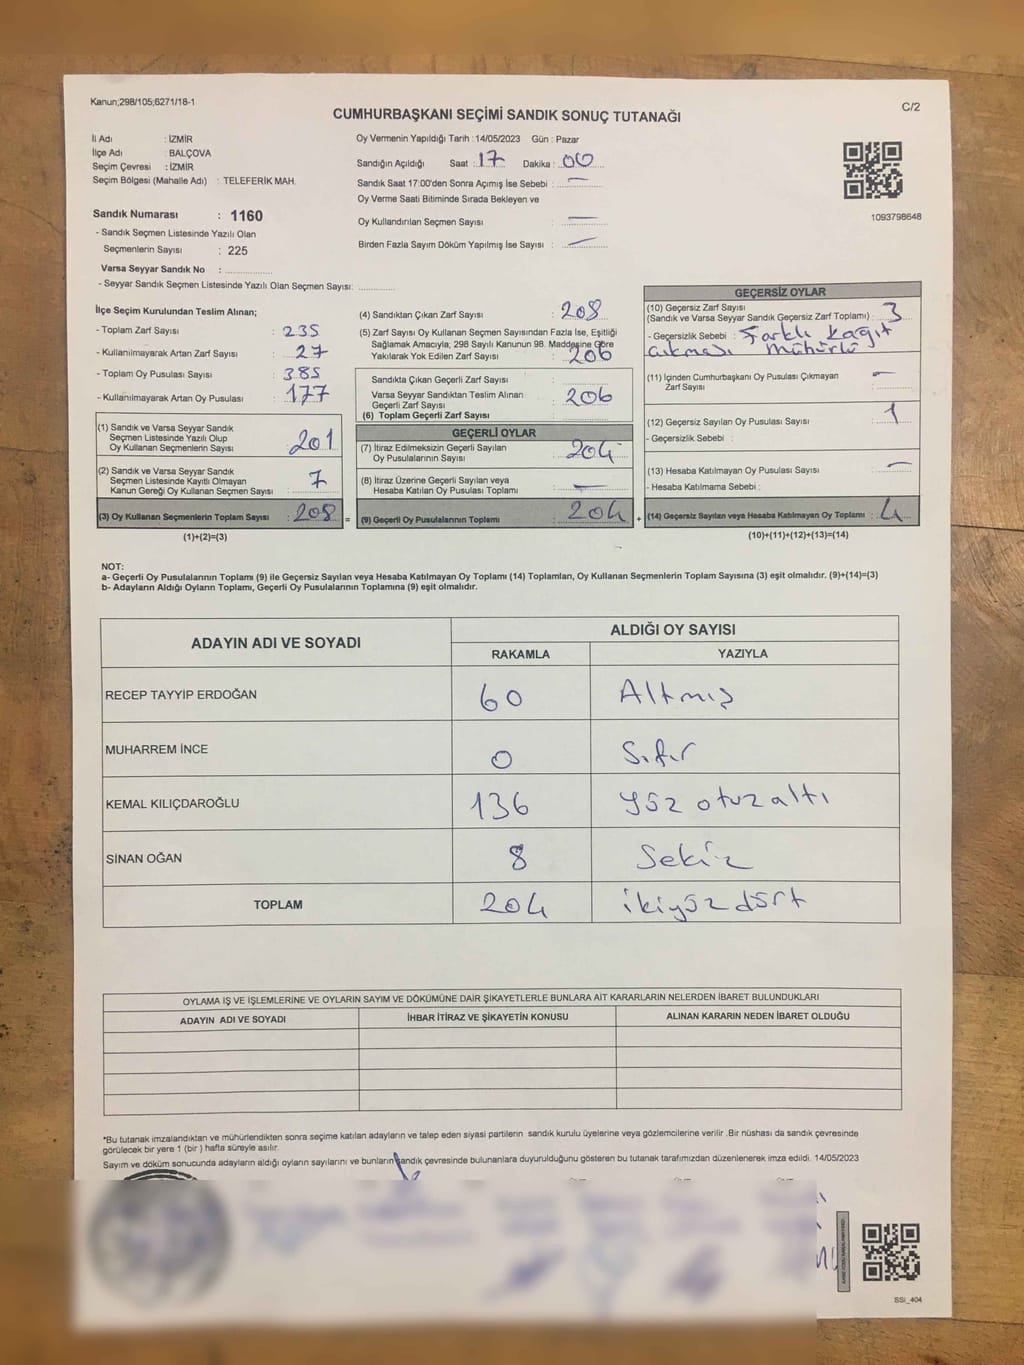 Kanun;298/105;6271/18-1
C/2
CUMHURBAŞKANI SEÇİMİ SANDIK SONUÇ TUTANAĞI
İl Adı : İZMİR
İlçe Adı : BALÇOVA
Seçim Çevresi : İZMİR
Seçim Bölgesi (Mahalle Adı) : TELEFERİK MAH.
Sandık Numarası : 1160
- Sandık Seçmen Listesinde Yazılı Olan
Seçmenlerin Sayısı : 225
Varsa Seyyar Sandık No : ..............
- Seyyar Sandık Seçmen Listesinde Yazılı Olan Seçmen Sayısı: ............
Oy Vermenin Yapıldığı Tarih : 14/05/2023 Gün : Pazar
Sandığın Açıldığı Saat : 17 Dakika : 00
Sandık Saat 17:00'den Sonra Açımış İse Sebebi : —
Oy Verme Saati Bitiminde Sırada Bekleyen ve
Oy Kullandırılan Seçmen Sayısı : —
Birden Fazla Sayım Döküm Yapılmış İse Sayısı : —
1093798648
İlçe Seçim Kurulundan Teslim Alınan;
- Toplam Zarf Sayısı : 235
- Kullanılmayarak Artan Zarf Sayısı : 27
- Toplam Oy Pusulası Sayısı : 385
- Kullanılmayarak Artan Oy Pusulası : 177
(1) Sandık ve Varsa Seyyar Sandık
Seçmen Listesinde Yazılı Olup
Oy Kullanan Seçmenlerin Sayısı : 201
(2) Sandık ve Varsa Seyyar Sandık
Seçmen Listesinde Kayıtlı Olmayan
Kanun Gereği Oy Kullanan Seçmen Sayısı : 7
(3) Oy Kullanan Seçmenlerin Toplam Sayısı : 208 =
(1)+(2)=(3)
(4) Sandıktan Çıkan Zarf Sayısı : 208
(5) Zarf Sayısı Oy Kullanan Seçmen Sayısından Fazla İse, Eşitliği
Sağlamak Amacıyla, 298 Sayılı Kanunun 98. Maddesine Göre
Yakılarak Yok Edilen Zarf Sayısı : 206
Sandıkta Çıkan Geçerli Zarf Sayısı :
Varsa Seyyar Sandıktan Teslim Alınan
Geçerli Zarf Sayısı : 206
(6) Toplam Geçerli Zarf Sayısı :
GEÇERLİ OYLAR
(7) İtiraz Edilmeksizin Geçerli Sayılan
Oy Pusulalarının Sayısı : 204
(8) İtiraz Üzerine Geçerli Sayılan veya
Hesaba Katılan Oy Pusulası Toplamı : —
(9) Geçerli Oy Pusulalarının Toplamı : 204 +
GEÇERSİZ OYLAR
(10) Geçersiz Zarf Sayısı
(Sandık ve Varsa Seyyar Sandık Geçersiz Zarf Toplamı) : 3
- Geçersizlik Sebebi : Farklı kağıt
çıkması mühürlü
(11) İçinden Cumhurbaşkanı Oy Pusulası Çıkmayan
Zarf Sayısı : —
(12) Geçersiz Sayılan Oy Pusulası Sayısı : 1
- Geçersizlik Sebebi :
(13) Hesaba Katılmayan Oy Pusulası Sayısı : —
- Hesaba Katılmama Sebebi :
(14) Geçersiz Sayılan veya Hesaba Katılmayan Oy Toplamı : 4
(10)+(11)+(12)+(13)=(14)
NOT:
a- Geçerli Oy Pusulalarının Toplamı (9) ile Geçersiz Sayılan veya Hesaba Katılmayan Oy Toplamı (14) Toplamları, Oy Kullanan Seçmenlerin Toplam Sayısına (3) eşit olmalıdır. (9)+(14)=(3)
b- Adayların Aldığı Oyların Toplamı, Geçerli Oy Pusulalarının Toplamına (9) eşit olmalıdır.
ADAYIN ADI VE SOYADI
ALDIĞI OY SAYISI
RAKAMLA YAZIYLA
RECEP TAYYİP ERDOĞAN 60 Altmış
MUHARREM İNCE 0 Sıfır
KEMAL KILIÇDAROĞLU 136 yüz otuz altı
SİNAN OĞAN 8 Sekiz
TOPLAM 204 ikiyüz dört
OYLAMA İŞ VE İŞLEMLERİNE VE OYLARIN SAYIM VE DÖKÜMÜNE DAİR ŞİKAYETLERLE BUNLARA AİT KARARLARIN NELERDEN İBARET BULUNDUKLARI
ADAYIN ADI VE SOYADI İHBAR İTİRAZ VE ŞİKAYETİN KONUSU ALINAN KARARIN NEDEN İBARET OLDUĞU
*Bu tutanak imzalandıktan ve mühürlendikten sonra seçime katılan adayların ve talep eden siyasi partilerin sandık kurulu üyelerine veya gözlemcilerine verilir .Bir nüshası da sandık çevresinde
görülecek bir yere 1 (bir ) hafta süreyle asılır.
Sayım ve döküm sonucunda adayların aldığı oyların sayılarını ve bunların sandık çevresinde bulunanlara duyurulduğunu gösteren bu tutanak tarafımızdan düzenlenerek imza edildi. 14/05/2023
SSI_404